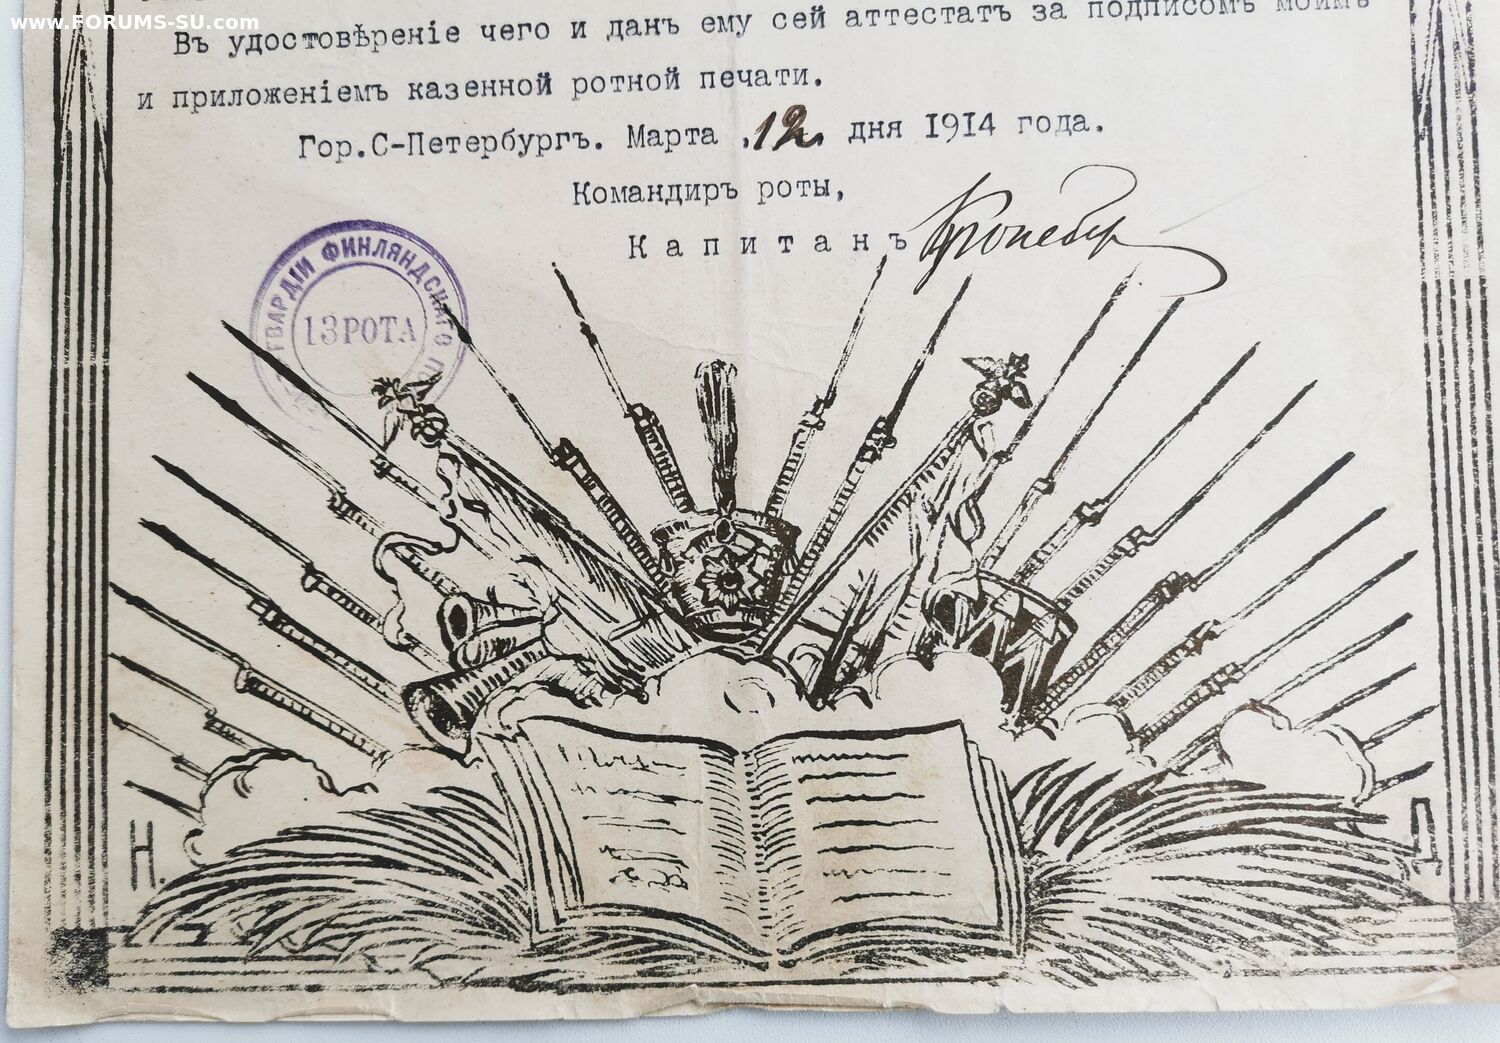 www.FORUMS-SU.com
Въ удостовѣреніе чего и данъ ему сей аттестатъ за подписомъ моимъ
и приложеніемъ казенной ротной печати.
Гор.С-Петербургъ. Марта „12„ дня 1914 года.
Командиръ роты,
Капитанъ
ГВАРДІИ ФИНЛЯНДСКАГО
13 РОТА
Н.
Д